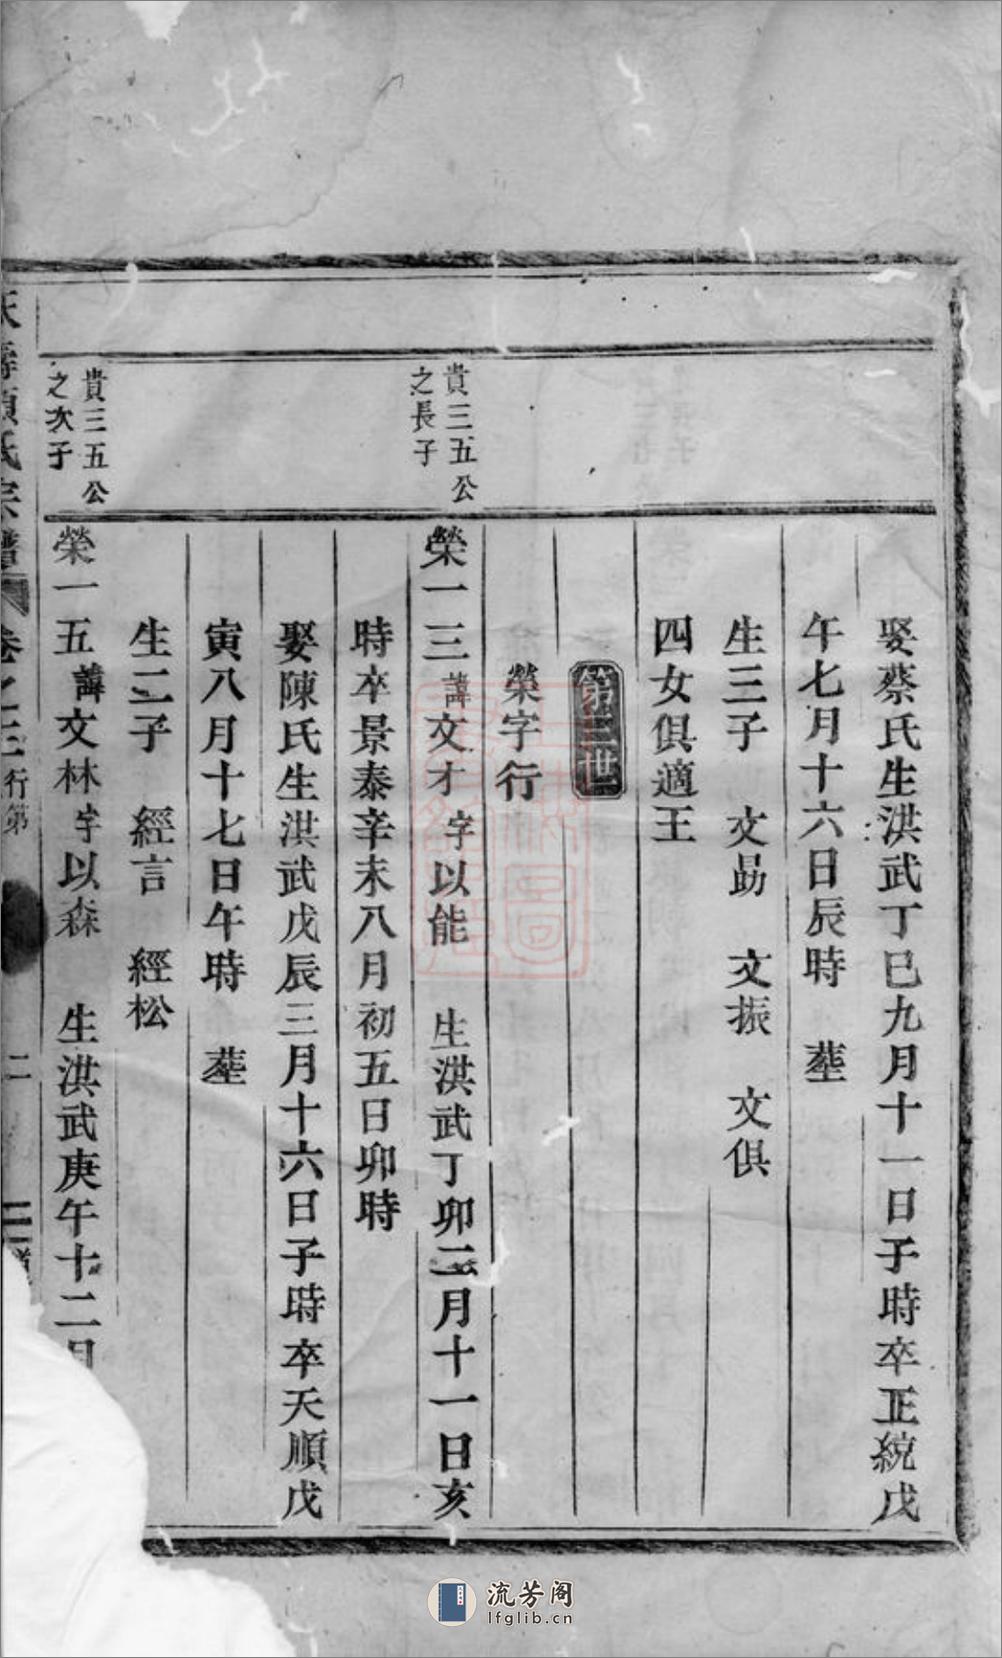 娶蔡氏生洪武丁巳九月十一日子時卒正統戊
午七月十六日辰時 塟
生三子 文勗 文振 文俱
四女俱適王
第三世
榮字行
貴三五公
之長子
榮一三諱文才字以能 生洪武丁卯二月十一日亥
時卒景泰辛未八月初五日卯時
娶陳氏生洪武戊辰三月十六日子時卒天順戊
寅八月十七日午時 塟
生二子 經言 經松
貴三五公
之次子
榮一五諱文林字以森 生洪武庚午十二月
氏宗譜 卷之三 行第 二
流芳阁
lfglib.cn